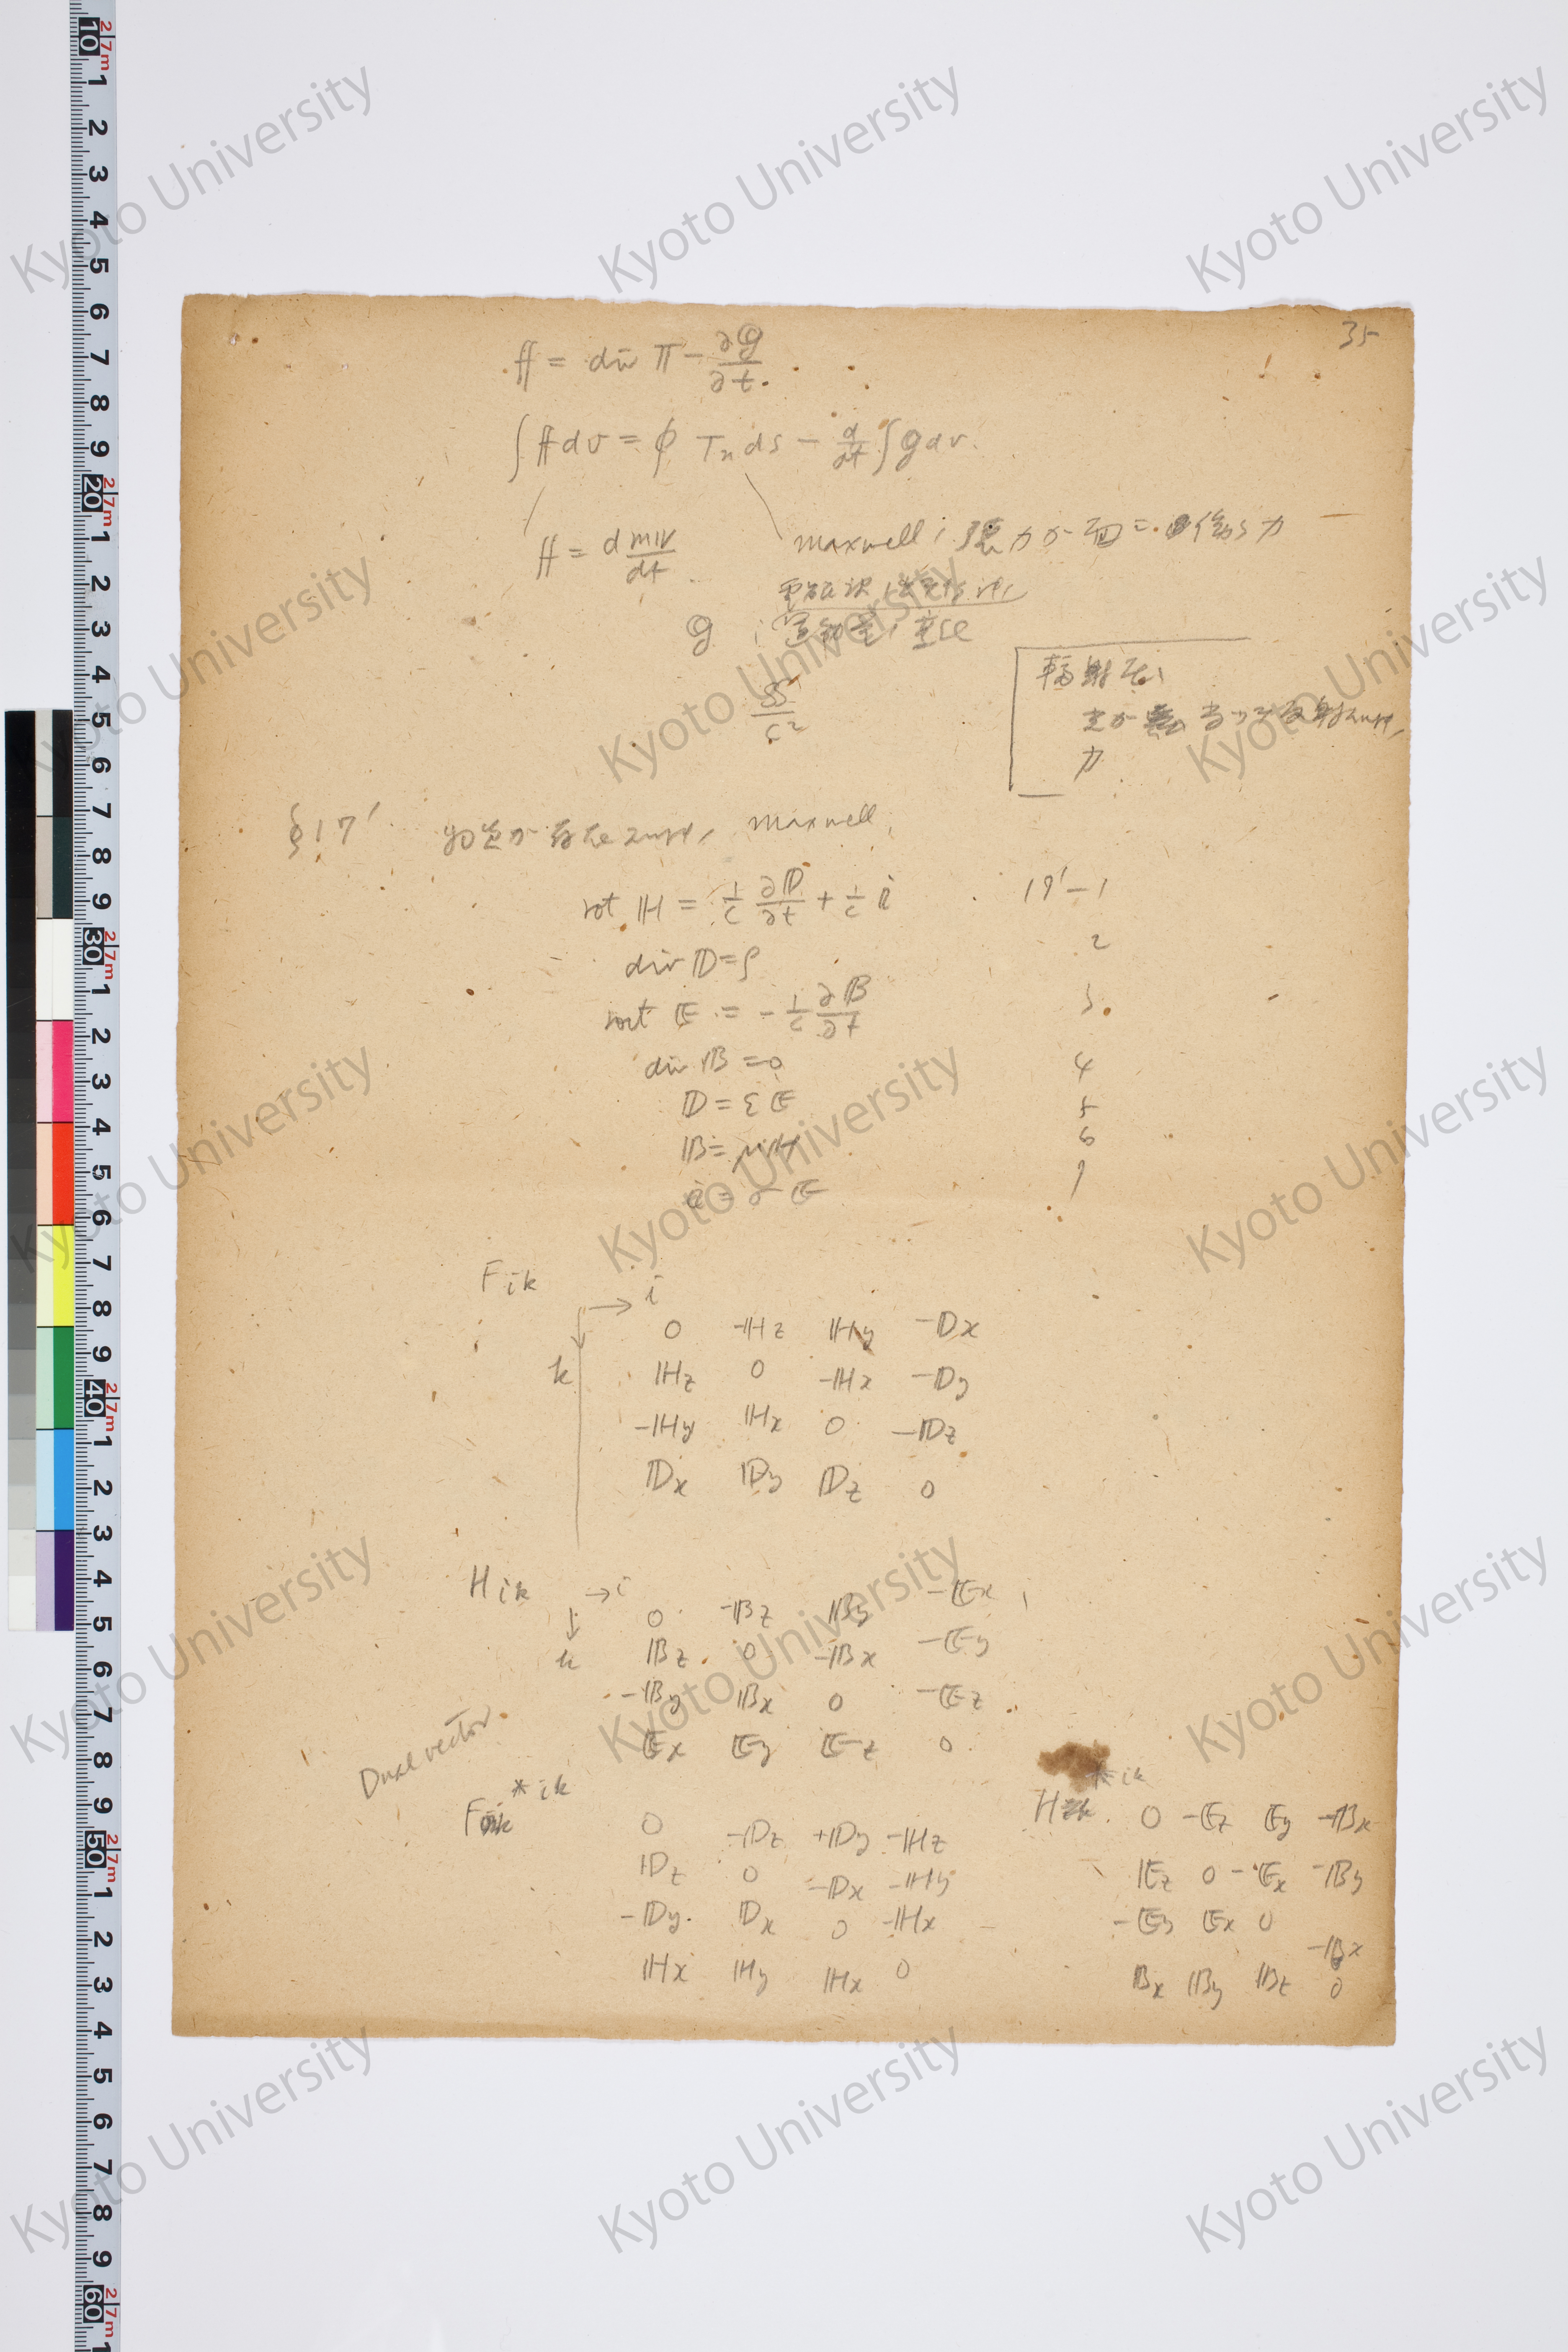 35
𝕗 = div 𝕋 − ∂𝕘/∂t.
∫ 𝕗 dv = ∮ Tn ds − d/dt ∫ 𝕘 dv.
𝕗 = d m𝕧/dt
Maxwell ノ 張力が面ニ働ク力
𝕘 : 運動量ノ密度
𝕊/c²
輻射圧
光が 当ッテ反射スル時ノ
力
§17′ 物質ガ存在スル時ノ Maxwell
rot ℍ = 1/c ∂𝔻/∂t + 1/c 𝕚 17′−1
div 𝔻 = ρ 2
rot 𝔼 = − 1/c ∂𝔹/∂t 3
div 𝔹 = 0 4
𝔻 = ε𝔼 5
𝔹 = μℍ 6
𝕚 = σ𝔼 7
Fik
→ i
k
0 −ℍz ℍy −𝔻x
ℍz 0 −ℍx −𝔻y
−ℍy ℍx 0 −𝔻z
𝔻x 𝔻y 𝔻z 0
Hik → i
↓
k
0 −𝔹z 𝔹y −𝔼x
𝔹z 0 −𝔹x −𝔼y
−𝔹y 𝔹x 0 −𝔼z
𝔼x 𝔼y 𝔼z 0
Dual vector
F*ik
0 −𝔻z +𝔻y −ℍz
𝔻z 0 −𝔻x −ℍy
−𝔻y 𝔻x 0 −ℍx
ℍx ℍy ℍx 0
H*ik
0 −𝔼z 𝔼y −𝔹x
𝔼z 0 −𝔼x −𝔹y
−𝔼y 𝔼x 0 −𝔹x
𝔹x 𝔹y 𝔹z 0
Kyoto University